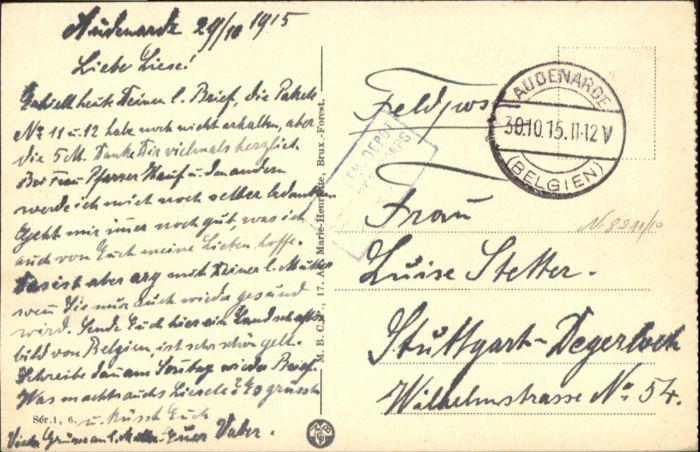 Audenarde 29/10 1915
Liebe Liese!
Erhielt heute Deinen l. Brief, die Pakete
No 11 u 12 habe noch nicht erhalten, aber
die 5 M. Danke Dir vielmals herzlich
Bei Frau Pfarrer Hauf u. den andern
werde ich mich noch selber bedanken
Geht mir immer noch gut, was ich
auch von Euch meine Lieben hoffe.
Das ist aber arg mit Deiner l. Mutter
wenn Sie nur auch wieder gesund
wird. Sende Euch hier ein Landschafts
bild von Belgien, ist sehr schön gelt.
Schreibe dann am Sonntag wieder Brief.
Was macht auch Liesele? Es grüsst
u. küsst Euch
Viele Grüsse an l. Mutter Euer Vater.
Sér. 1, 6.
M. B. C. 17. Marie-Henriette, Brux.-Forest.
Feldpost
AUDENARDE
30.10.15.11-12 V
(BELGIEN)
Frau
Luise Stetter.
Stuttgart-Degerloch
Wilhelmstrasse No 54.